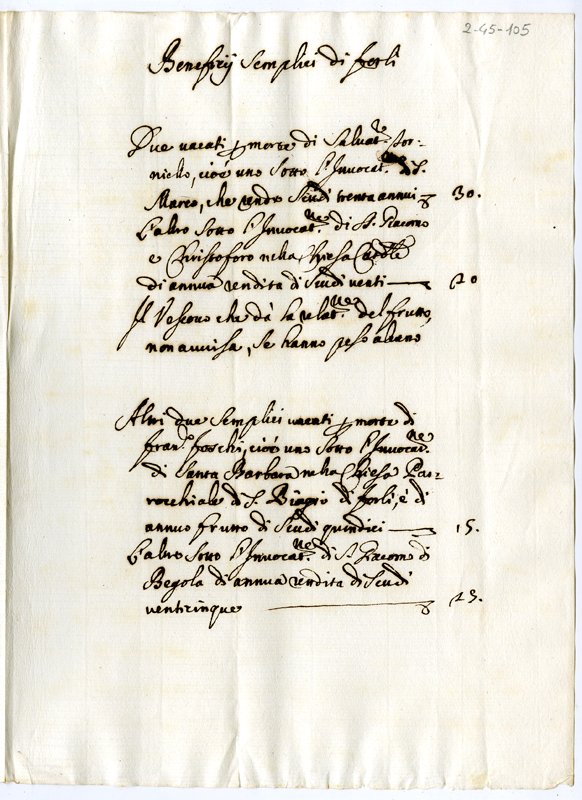 2-45-105
Beneficij Semplici di forlì
Due vacati p morte di Salvat.re Tor-
niello, cioè uno Sotto l'Invocat.ne di S.
Marco, che rende Scudi trenta annui 30.
L'altro Sotto l'Invocat.ne di S. Giacomo
e Christoforo nella Chiesa Catt.le
di annua rendita di Scudi venti 20
Il Vescovo che dà la relat.ne del frutto,
non avvisa, se hanno peso alcuno
Altri due Semplici vacati p morte di
Fran.co foschi, cioè uno Sotto l'Invocat.ne
di Santa Barbara nella Chiesa Par-
rocchiale di S. Biagio di forlì, è di
annuo frutto di Scudi quindici 15.
L'altro Sotto l'Invocat.ne di S. Giacomo di
Begola di annua rendita di Scudi
venticinque 25.